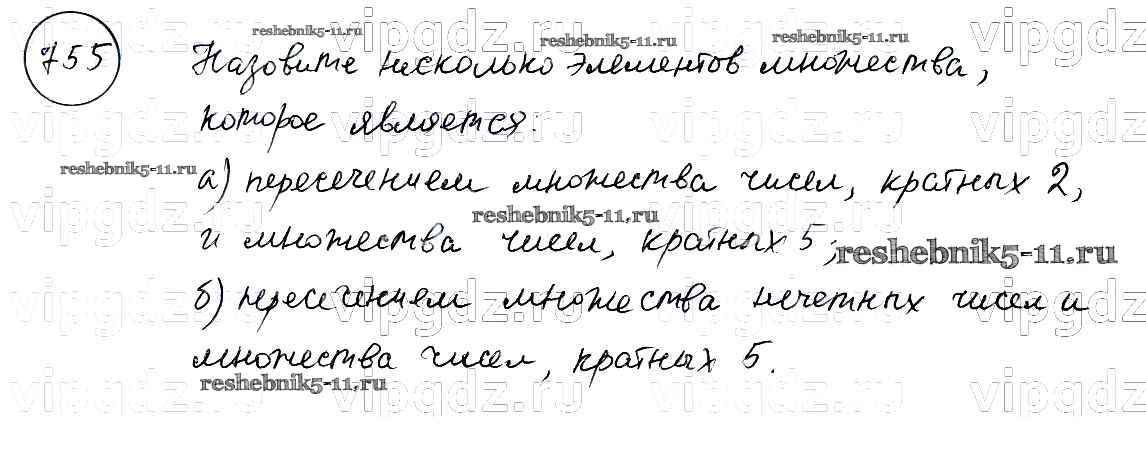 755
Назовите несколько элементов множества,
которое является.
а) пересечением множества чисел, кратных 2,
и множества чисел, кратных 5;
б) пересечением множества нечетных чисел и
множества чисел, кратных 5.
reshebnik5-11.ru
reshebnik5-11.ru
reshebnik5-11.ru
reshebnik5-11.ru
reshebnik5-11.ru
reshebnik5-11.ru
reshebnik5-11.ru
vipgdz.ru vipgdz.ru vipgdz.ru vipgdz
vipgdz.ru vipgdz.ru vipgdz.ru vipgdz
vipgdz.ru vipgdz.ru vipgdz.ru vipgdz
vipgdz.ru vipgdz.ru vipgdz.ru vipgdz
vipgdz.ru vipgdz.ru vipgdz.ru vipgdz